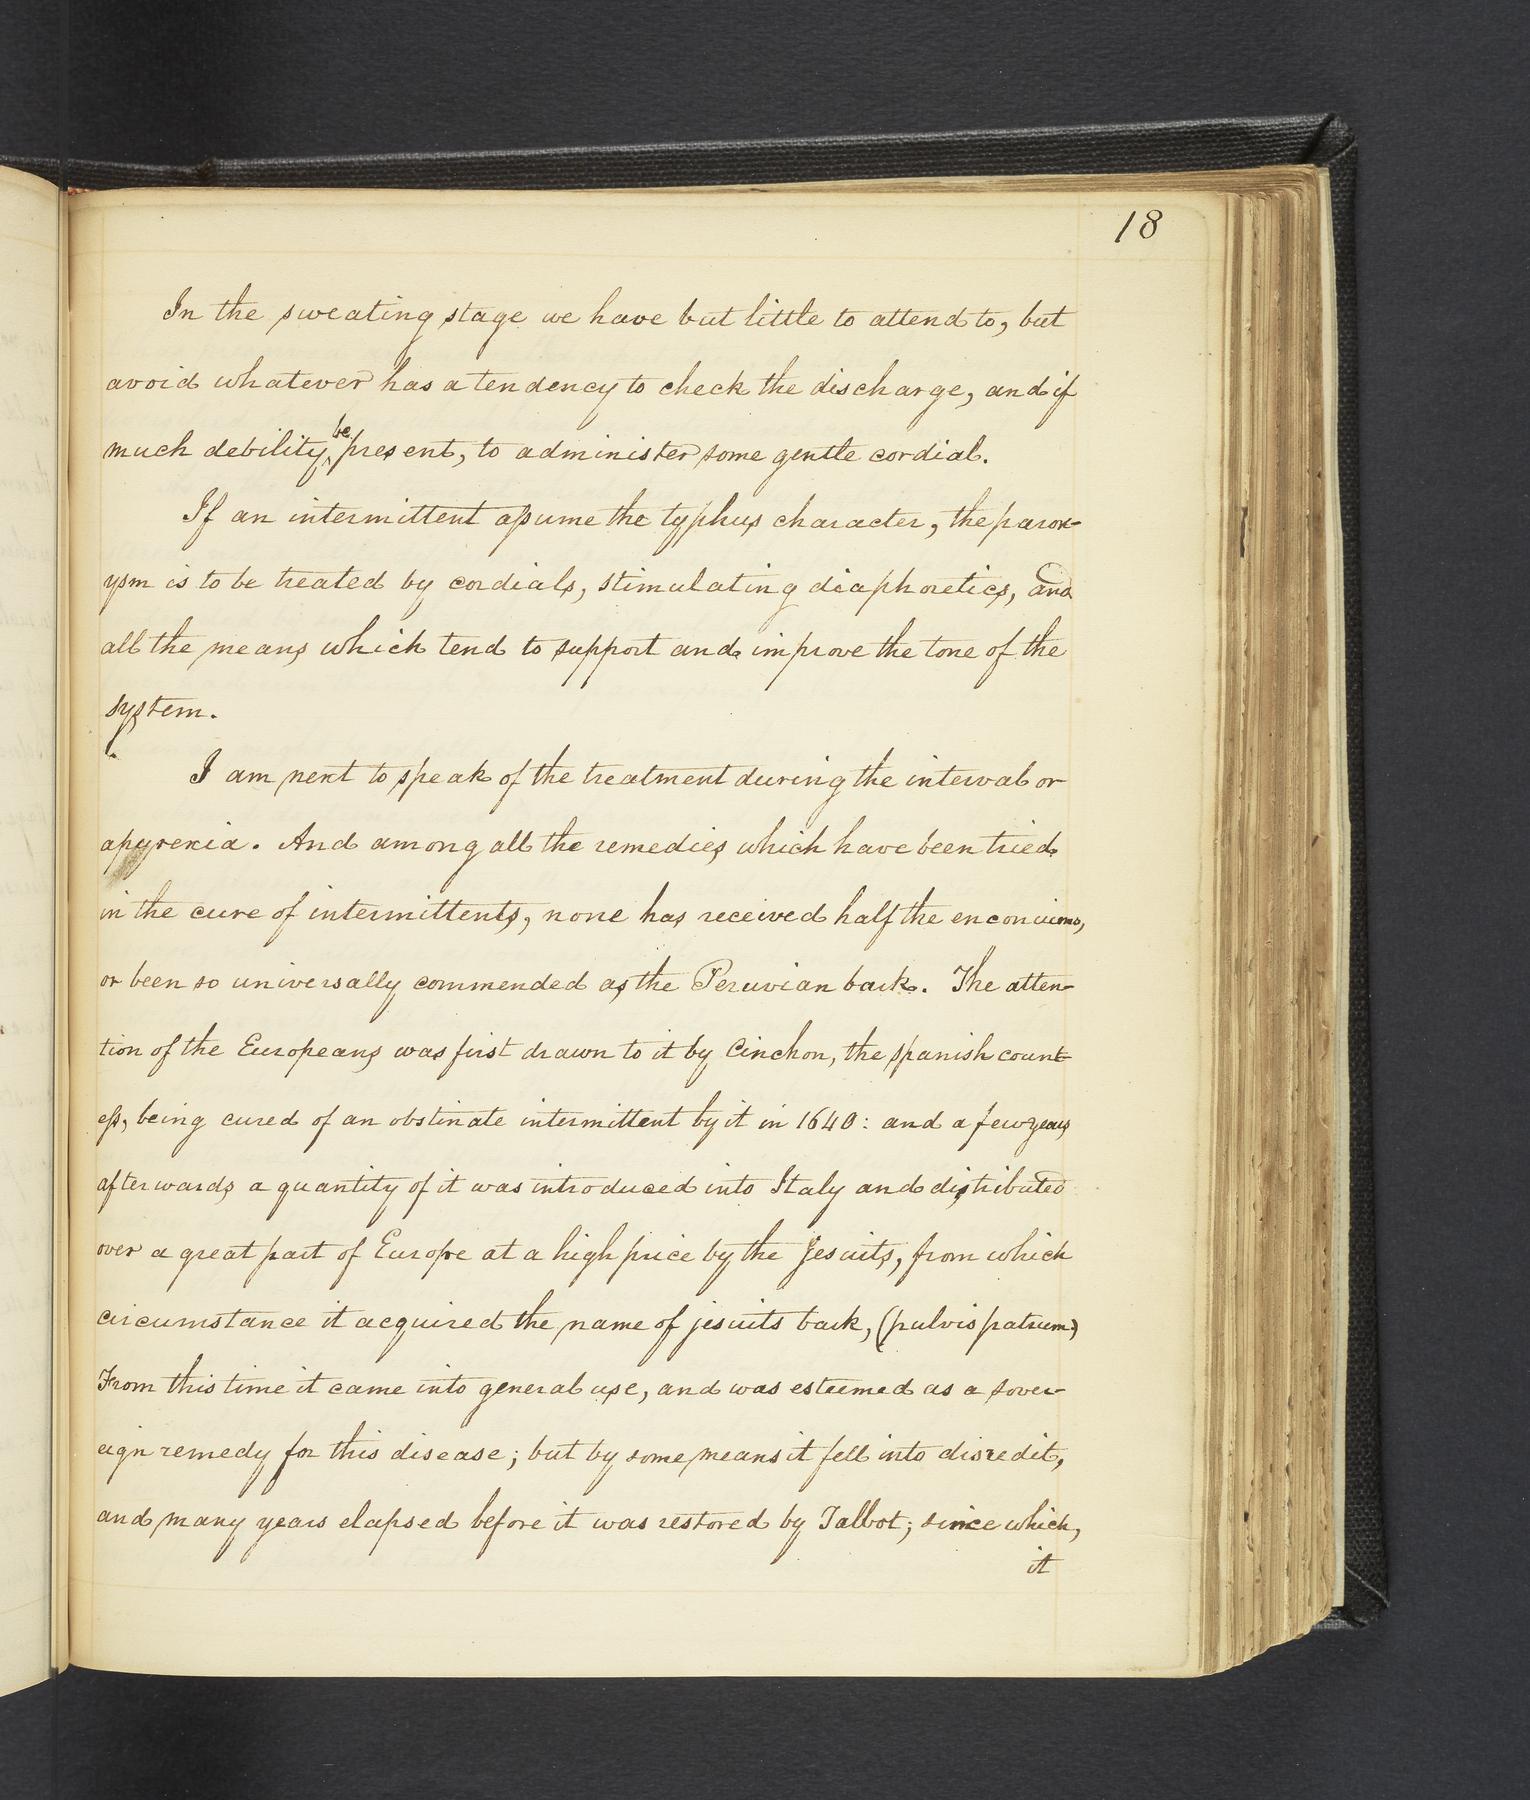 18
In the sweating stage we have but little to attend to, but
avoid whatever has a tendency to check the discharge, and if
much debility be present, to administer some gentle cordial.
If an intermittent assume the typhus character, the parox-
ysm is to be treated by cordials, stimulating diaphoretics, and
all the means which tend to support and improve the tone of the
system.
I am next to speak of the treatment during the interval or
apyrexia. And among all the remedies which have been tried
in the cure of intermittents, none has received half the enconiums,
or been so universally commended as the Peruvian bark. The atten-
tion of the Europeans was first drawn to it by Cinchon, the spanish count-
ess, being cured of an obstinate intermittent by it in 1640: and a few years
afterwards a quantity of it was introduced into Italy and distributed
over a great part of Europe at a high price by the Jesuits, from which
circumstance it acquired the name of jesuits bark, (pulvis patrum)
From this time it came into general use, and was esteemed as a sover-
eign remedy for this disease; but by some means it fell into disredit,
and many years elapsed before it was restored by Talbot; since which,
it